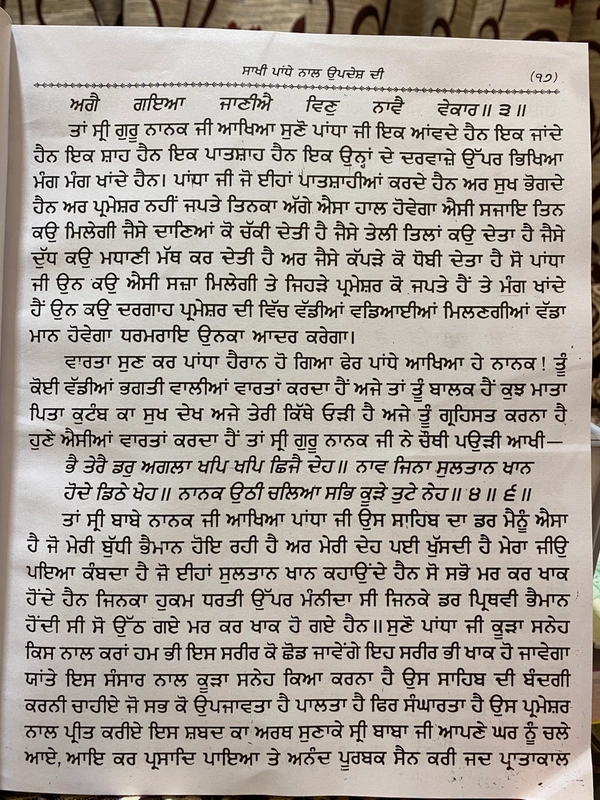 ਸਾਖੀ ਪਾਂਧੇ ਨਾਲ ਉਪਦੇਸ਼ ਦੀ (੧੭)
ਅਗੈ ਗਇਆ ਜਾਣੀਐ ਵਿਣੁ ਨਾਵੈ ਵੇਕਾਰ॥ ੩॥
ਤਾਂ ਸ੍ਰੀ ਗੁਰੂ ਨਾਨਕ ਜੀ ਆਖਿਆ ਸੁਣੋ ਪਾਂਧਾ ਜੀ ਇਕ ਆਂਵਦੇ ਹੈਨ ਇਕ ਜਾਂਦੇ
ਹੈਨ ਇਕ ਸ਼ਾਹ ਹੈਨ ਇਕ ਪਾਤਸ਼ਾਹ ਹੈਨ ਇਕ ਉਨ੍ਹਾਂ ਦੇ ਦਰਵਾਜ਼ੇ ਉੱਪਰ ਭਿਖਿਆ
ਮੰਗ ਮੰਗ ਖਾਂਦੇ ਹੈਨ। ਪਾਂਧਾ ਜੀ ਜੋ ਈਹਾਂ ਪਾਤਸ਼ਾਹੀਆਂ ਕਰਦੇ ਹੈਨ ਅਰ ਸੁਖ ਭੋਗਦੇ
ਹੈਨ ਅਰ ਪ੍ਰਮੇਸ਼ਰ ਨਹੀਂ ਜਪਤੇ ਤਿਨਕਾ ਅੱਗੇ ਐਸਾ ਹਾਲ ਹੋਵੇਗਾ ਐਸੀ ਸਜਾਇ ਤਿਨ
ਕਉ ਮਿਲੇਗੀ ਜੈਸੇ ਦਾਣਿਆਂ ਕੋ ਚੱਕੀ ਦੇਤੀ ਹੈ ਜੈਸੇ ਤੇਲੀ ਤਿਲਾਂ ਕਉ ਦੇਤਾ ਹੈ ਜੈਸੇ
ਦੁੱਧ ਕਉ ਮਧਾਣੀ ਮੱਥ ਕਰ ਦੇਤੀ ਹੈ ਅਰ ਜੈਸੇ ਕੱਪੜੇ ਕੋ ਧੋਬੀ ਦੇਤਾ ਹੈ ਸੋ ਪਾਂਧਾ
ਜੀ ਉਨ ਕਉ ਐਸੀ ਸਜ਼ਾ ਮਿਲੇਗੀ ਤੇ ਜਿਹੜੇ ਪ੍ਰਮੇਸ਼ਰ ਕੋ ਜਪਤੇ ਹੈਂ ਤੇ ਮੰਗ ਖਾਂਦੇ
ਹੈਂ ਉਨ ਕਉ ਦਰਗਾਹ ਪ੍ਰਮੇਸ਼ਰ ਦੀ ਵਿੱਚ ਵੱਡੀਆਂ ਵਡਿਆਈਆਂ ਮਿਲਣਗੀਆਂ ਵੱਡਾ
ਮਾਨ ਹੋਵੇਗਾ ਧਰਮਰਾਇ ਉਨਕਾ ਆਦਰ ਕਰੇਗਾ।
ਵਾਰਤਾ ਸੁਣ ਕਰ ਪਾਂਧਾ ਹੈਰਾਨ ਹੋ ਗਿਆ ਫੇਰ ਪਾਂਧੇ ਆਖਿਆ ਹੇ ਨਾਨਕ! ਤੂੰ
ਕੋਈ ਵੱਡੀਆਂ ਭਗਤੀ ਵਾਲੀਆਂ ਵਾਰਤਾਂ ਕਰਦਾ ਹੈਂ ਅਜੇ ਤਾਂ ਤੂੰ ਬਾਲਕ ਹੈਂ ਕੁਝ ਮਾਤਾ
ਪਿਤਾ ਕੁਟੰਬ ਕਾ ਸੁਖ ਦੇਖ ਅਜੇ ਤੇਰੀ ਕਿੱਥੇ ਓੜੀ ਹੈ ਅਜੇ ਤੂੰ ਗ੍ਰਹਿਸਤ ਕਰਨਾ ਹੈ
ਹੁਣੇ ਐਸੀਆਂ ਵਾਰਤਾਂ ਕਰਦਾ ਹੈਂ ਤਾਂ ਸ੍ਰੀ ਗੁਰੂ ਨਾਨਕ ਜੀ ਨੇ ਚੌਥੀ ਪਉੜੀ ਆਖੀ—
ਭੈ ਤੇਰੈ ਡਰੁ ਅਗਲਾ ਖਪਿ ਖਪਿ ਛਿਜੈ ਦੇਹ॥ ਨਾਵ ਜਿਨਾ ਸੁਲਤਾਨ ਖਾਨ
ਹੋਦੇ ਡਿਠੇ ਖੇਹ॥ ਨਾਨਕ ਉਠੀ ਚਲਿਆ ਸਭਿ ਕੂੜੇ ਤੁਟੇ ਨੇਹ॥ ੪॥ ੬॥
ਤਾਂ ਸ੍ਰੀ ਬਾਬੇ ਨਾਨਕ ਜੀ ਆਖਿਆ ਪਾਂਧਾ ਜੀ ਉਸ ਸਾਹਿਬ ਦਾ ਡਰ ਮੈਨੂੰ ਐਸਾ
ਹੈ ਜੋ ਮੇਰੀ ਬੁੱਧੀ ਭੈਮਾਨ ਹੋਇ ਰਹੀ ਹੈ ਅਰ ਮੇਰੀ ਦੇਹ ਪਈ ਖੁੱਸਦੀ ਹੈ ਮੇਰਾ ਜੀਉ
ਪਇਆ ਕੰਬਦਾ ਹੈ ਜੋ ਈਹਾਂ ਸੁਲਤਾਨ ਖਾਨ ਕਹਾਉਂਦੇ ਹੈਨ ਸੋ ਸਭੋ ਮਰ ਕਰ ਖਾਕ
ਹੋਂਦੇ ਹੈਨ ਜਿਨਕਾ ਹੁਕਮ ਧਰਤੀ ਉੱਪਰ ਮੰਨੀਦਾ ਸੀ ਜਿਨਕੇ ਡਰ ਪ੍ਰਿਥਵੀ ਭੈਮਾਨ
ਹੋਂਦੀ ਸੀ ਸੋ ਉੱਠ ਗਏ ਮਰ ਕਰ ਖਾਕ ਹੋ ਗਏ ਹੈਨ॥ ਸੁਣੋ ਪਾਂਧਾ ਜੀ ਕੂੜਾ ਸਨੇਹ
ਕਿਸ ਨਾਲ ਕਰਾਂ ਹਮ ਭੀ ਇਸ ਸਰੀਰ ਕੋ ਛੋਡ ਜਾਵੇਂਗੇ ਇਹ ਸਰੀਰ ਭੀ ਖਾਕ ਹੋ ਜਾਵੇਗਾ
ਯਾਂਤੇ ਇਸ ਸੰਸਾਰ ਨਾਲ ਕੂੜਾ ਸਨੇਹ ਕਿਆ ਕਰਨਾ ਹੈ ਉਸ ਸਾਹਿਬ ਦੀ ਬੰਦਗੀ
ਕਰਨੀ ਚਾਹੀਏ ਜੋ ਸਭ ਕੋ ਉਪਜਾਵਤਾ ਹੈ ਪਾਲਤਾ ਹੈ ਫਿਰ ਸੰਘਾਰਤਾ ਹੈ ਉਸ ਪ੍ਰਮੇਸ਼ਰ
ਨਾਲ ਪ੍ਰੀਤ ਕਰੀਏ ਇਸ ਸ਼ਬਦ ਕਾ ਅਰਥ ਸੁਣਾਕੇ ਸ੍ਰੀ ਬਾਬਾ ਜੀ ਆਪਣੇ ਘਰ ਨੂੰ ਚਲੇ
ਆਏ, ਆਇ ਕਰ ਪ੍ਰਸਾਦਿ ਪਾਇਆ ਤੇ ਅਨੰਦ ਪੂਰਬਕ ਸੈਨ ਕਰੀ ਜਦ ਪ੍ਰਾਤਾਕਾਲ